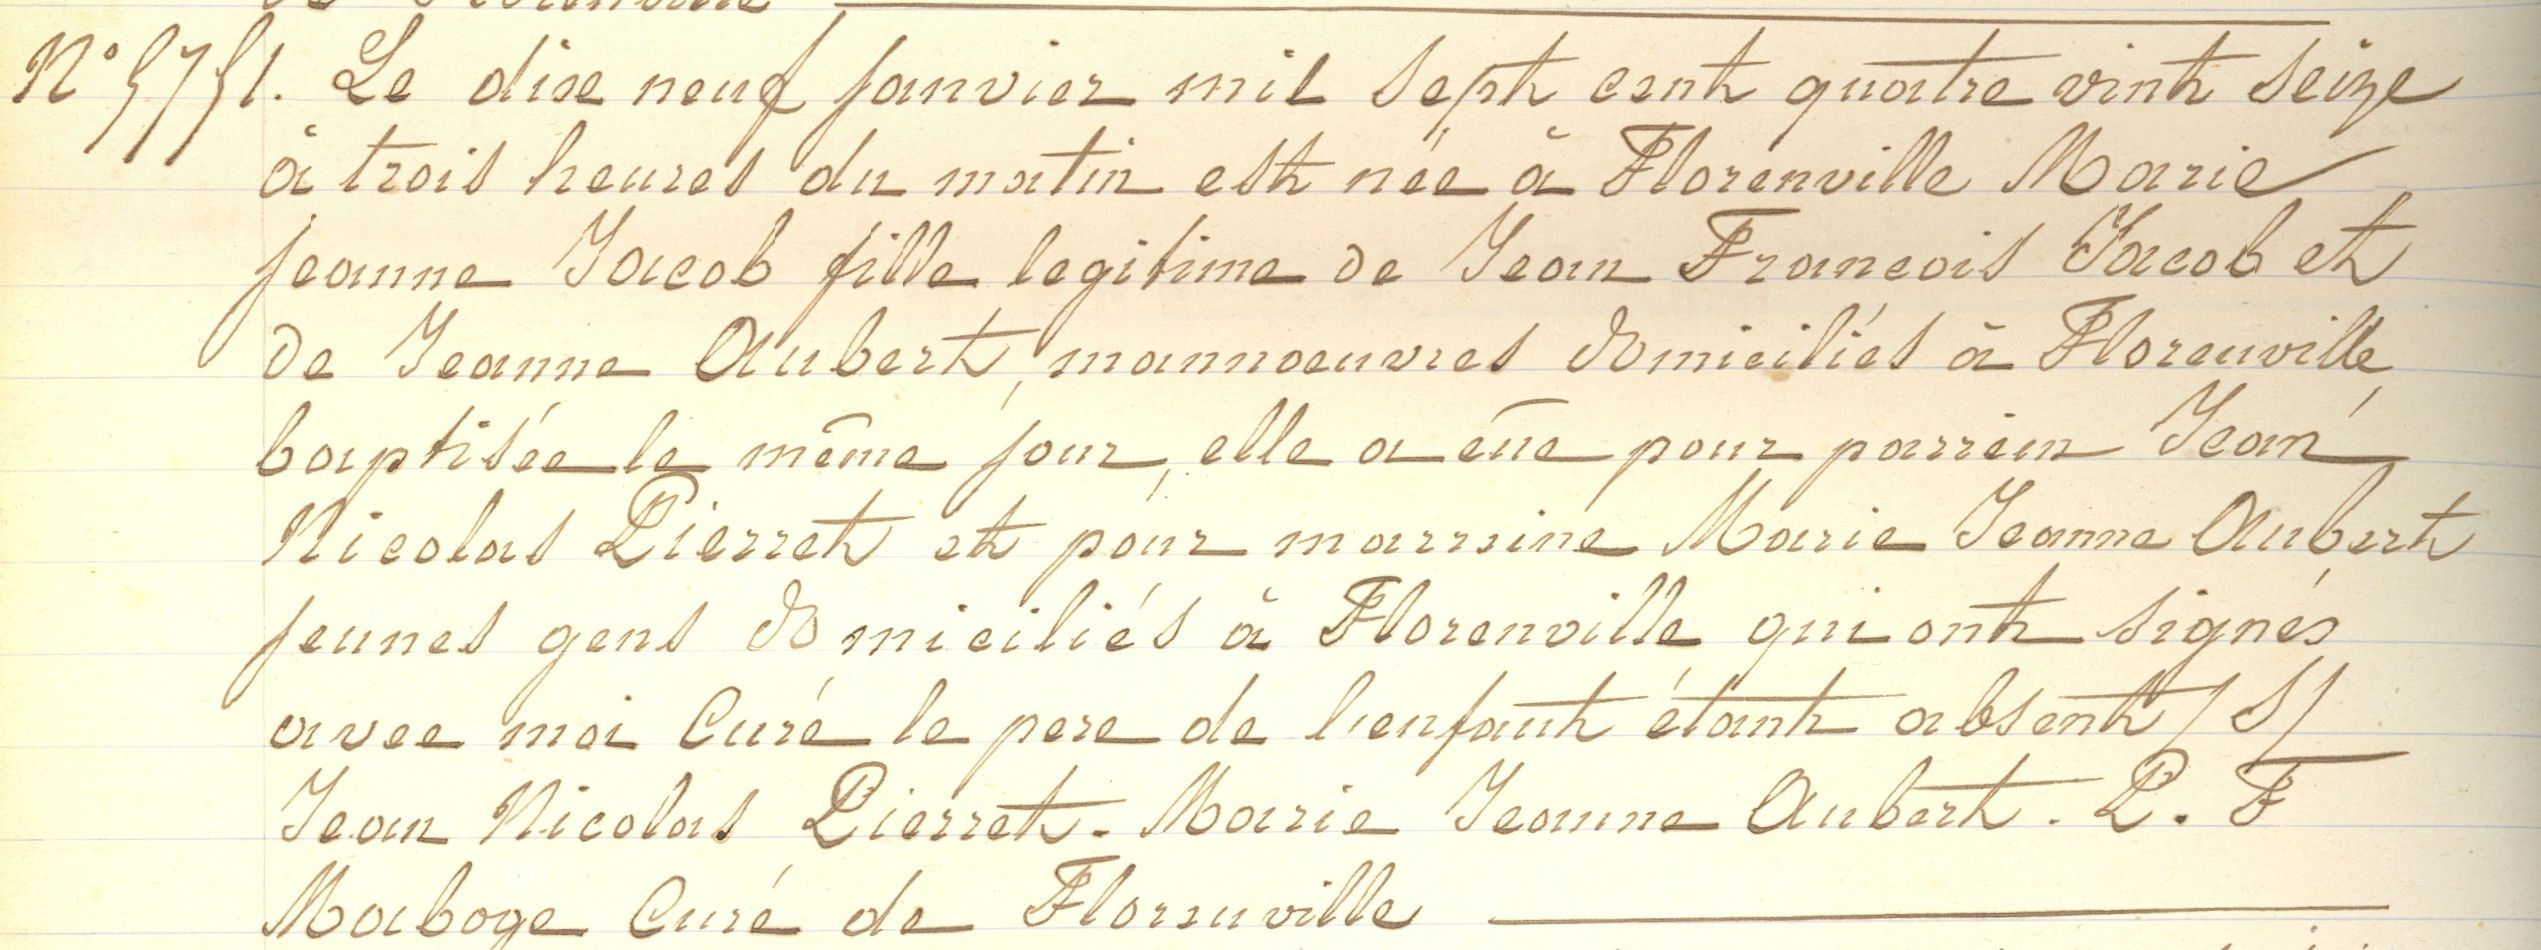 N° 5751. Le dixe neuf janvier mil sept cent quatre vint seize
à trois heures du matin est née à Florenville Marie
jeanne Jacob fille legitime de Jean Francois Jacob et
de Jeanne Aubert, mannoeuvres domiciliés à Florenville,
baptisée le même jour, elle a eûe pour parrein Jean
Nicolas Pierret et pour marreine Marie Jeanne Aubert
jeunes gens domiciliés à Florenville qui ont signés
avec moi Curé le pere de l'enfant étant absent /S/
Jean Nicolas Pierret. Marie Jeanne Aubert. P. F
Maboge Curé de Florenville